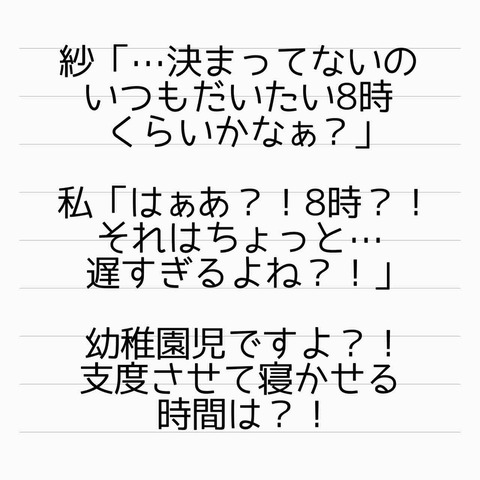 紗「…決まってないの
いつもだいたい8時
くらいかなぁ？」
私「はぁあ？！8時？！
それはちょっと…
遅すぎるよね？！」
幼稚園児ですよ？！
支度させて寝かせる
時間は？！